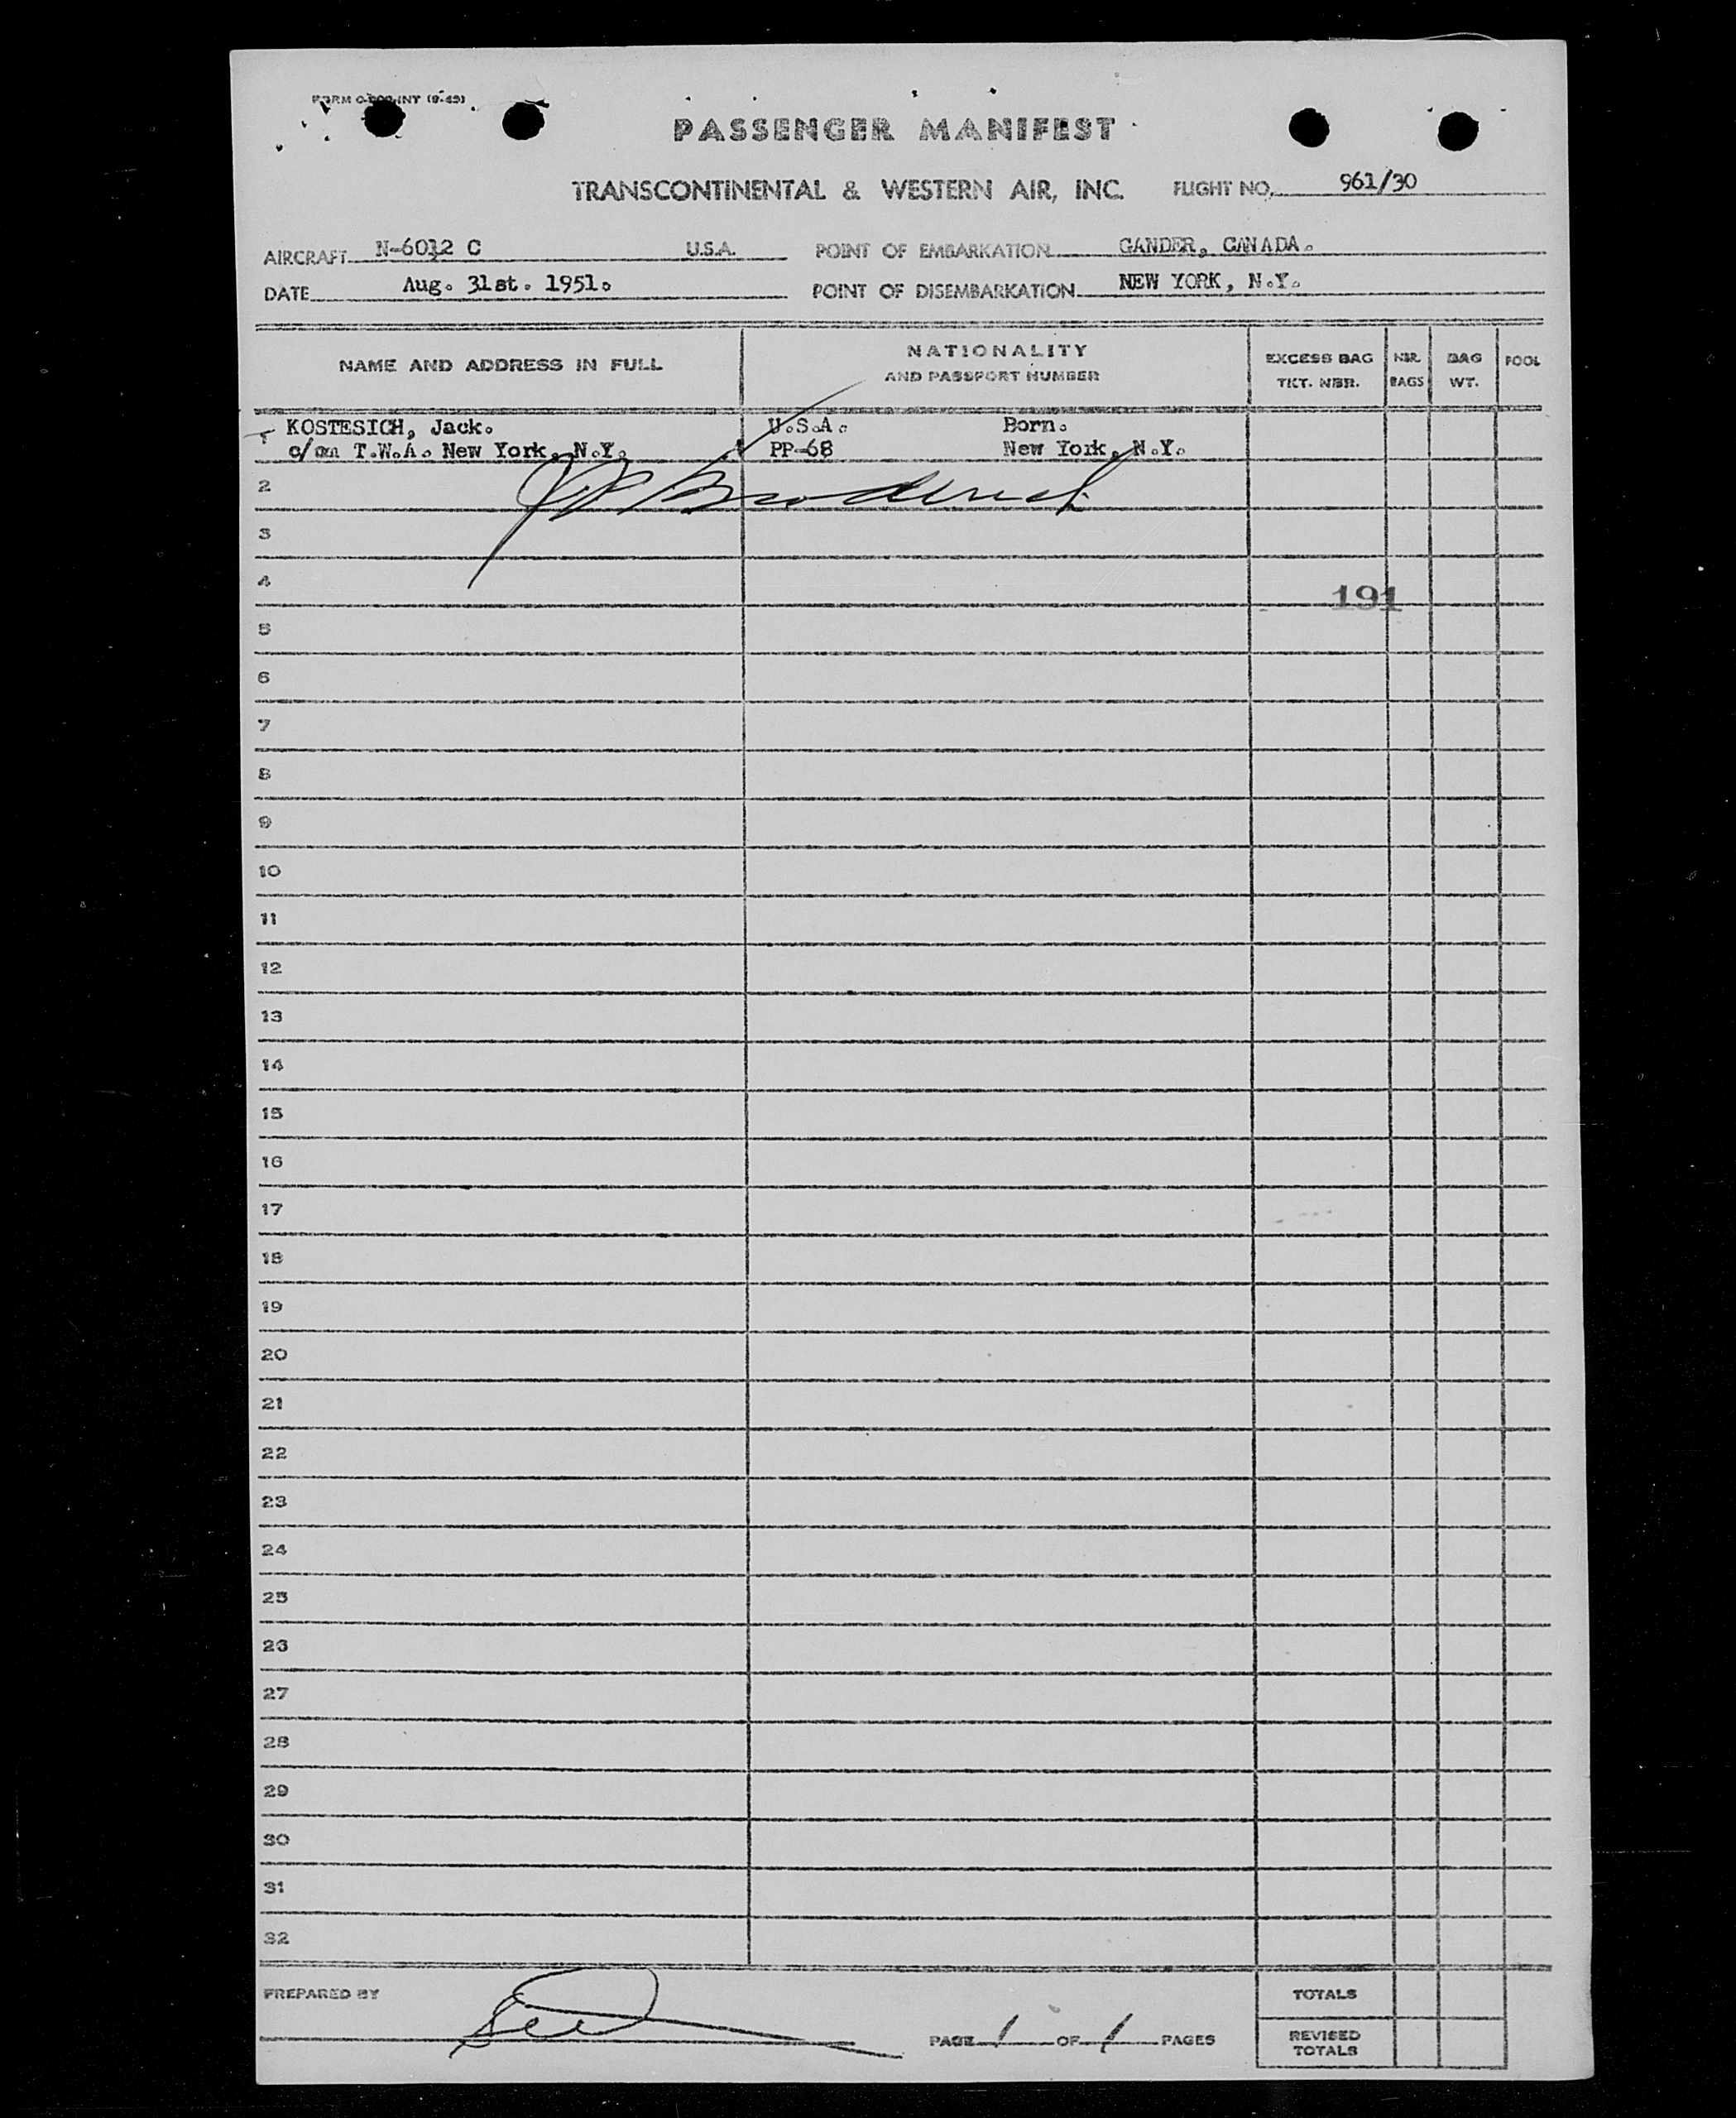 PASSENGER MANIFEST
TRANSCONTINENTAL & WESTERN AIR, INC. FLIGHT NO. 961/30
AIRCRAFT N-6012 C U.S.A. POINT OF EMBARKATION GANDER, CANADA.
DATE Aug. 31st. 1951. POINT OF DISEMBARKATION NEW YORK, N.Y.
NAME AND ADDRESS IN FULL
NATIONALITY
AND PASSPORT NUMBER
EXCESS BAG
TKT. NBR.
NBR.
BAGS
BAG
WT.
POOL
1 KOSTESICH, Jack. U.S.A. Born.
c/o T.W.A. New York, N.Y. PP-68 New York, N.Y.
2
3
4
191
5
6
7
8
9
10
11
12
13
14
15
16
17
18
19
20
21
22
23
24
25
26
27
28
29
30
31
32
PREPARED BY
TOTALS
PAGE 1 OF 1 PAGES
REVISED
TOTALS